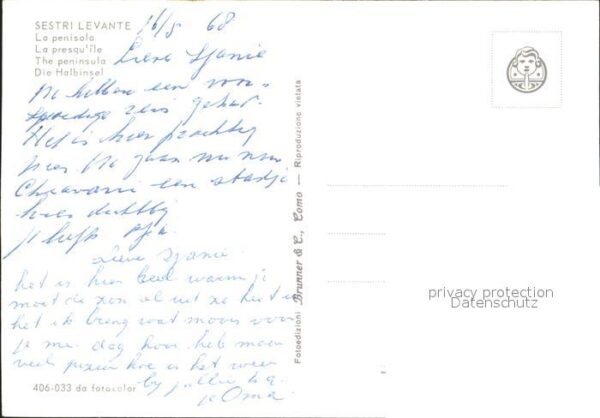 SESTRI LEVANTE
La penisola
La presqu'île
The peninsula
Die Halbinsel
16/5 68
Lieve Sjanie
We hebben een voor-
spoedige reis gehad.
Het is hier prachtig
weer. We gaan nu naar
Chiavari een stadje
hier dichtbij
Lieve Sjanie.
het is hier heel warm je
moet de zon al uit zo heet is
het ik breng wat moois voor
je mee. dag hoor heb maar
veel plezier hoe is het weer
bij jullie
je Oma
406-033 da fotocolor
Fotoedizioni Brunner & C., Como — Riproduzione vietata
privacy protection
Datenschutz